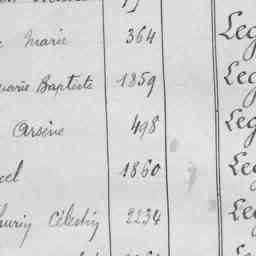 Marie 364 Leg
Baptiste 1859 Leg
Arsène 498 Leg
1860 Leg
Célestin 2234 Leg